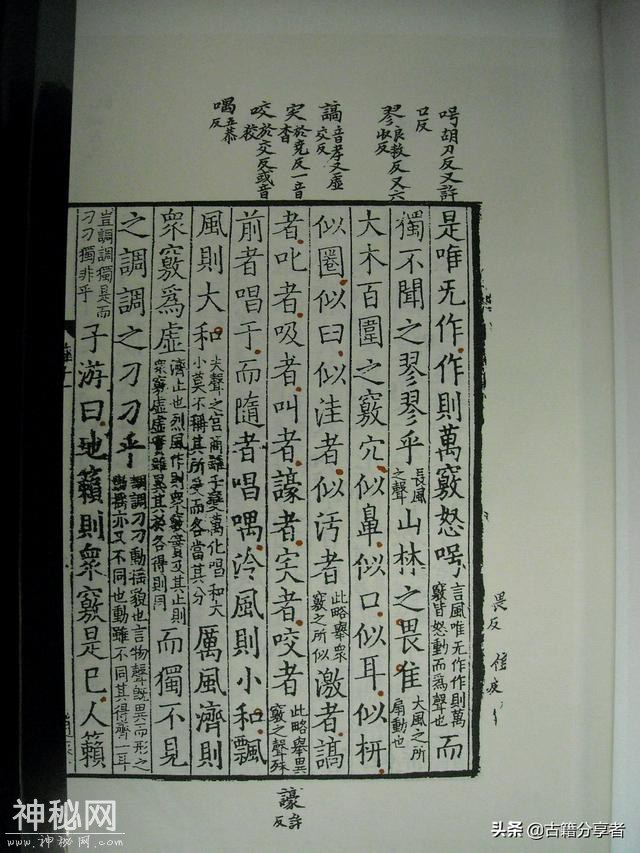 呺胡刀反又許
口反
翏良救反又六
收反
謞音孝又虛
交反
宎於堯反一音
杳
咬於交反或音
狡
喁五恭
反
是唯无作作則萬竅怒呺言風唯无作作則萬竅皆怒動而爲聲也而
獨不聞之翏翏乎長風之聲山林之畏隹大風之所扇動也
大木百圍之竅穴似鼻似口似耳似枅
似圈似臼似洼者似汚者此略舉衆竅之所似激者謞
者叱者吸者叫者譹者宎者咬者此略舉異竅之聲殊
前者唱于而隨者唱喁泠風則小和飄
風則大和夫聲之宮商雖千變萬化唱和大小莫不稱其所受而各當其分厲風濟則
衆竅爲虛濟止也烈風作則衆竅實及其止則衆竅虛虛實雖異其於各得則同而獨不見
之調調之刁刁乎調調刁刁動搖貌也言物聲旣異而形之動搖亦又不同也動雖不同其得齊一耳
豈調調獨是而刁刁獨非乎子游曰地籟則衆竅是已人籟
畏
反
譹許
反
神秘网
www.神秘网.com
头条 @古籍分享者